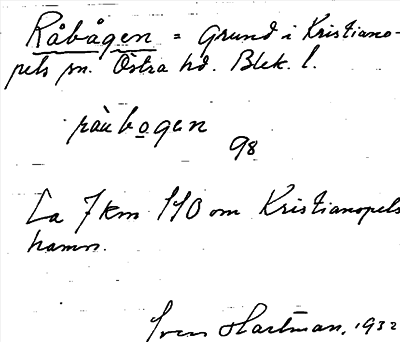 Råbågen = Grund i Kristiano-
pels sn. Östra hd. Blek. l.
ràubogen
98
Ca 7 km SSO om Kristianopels
hamn.
Sven Hartman, 1932